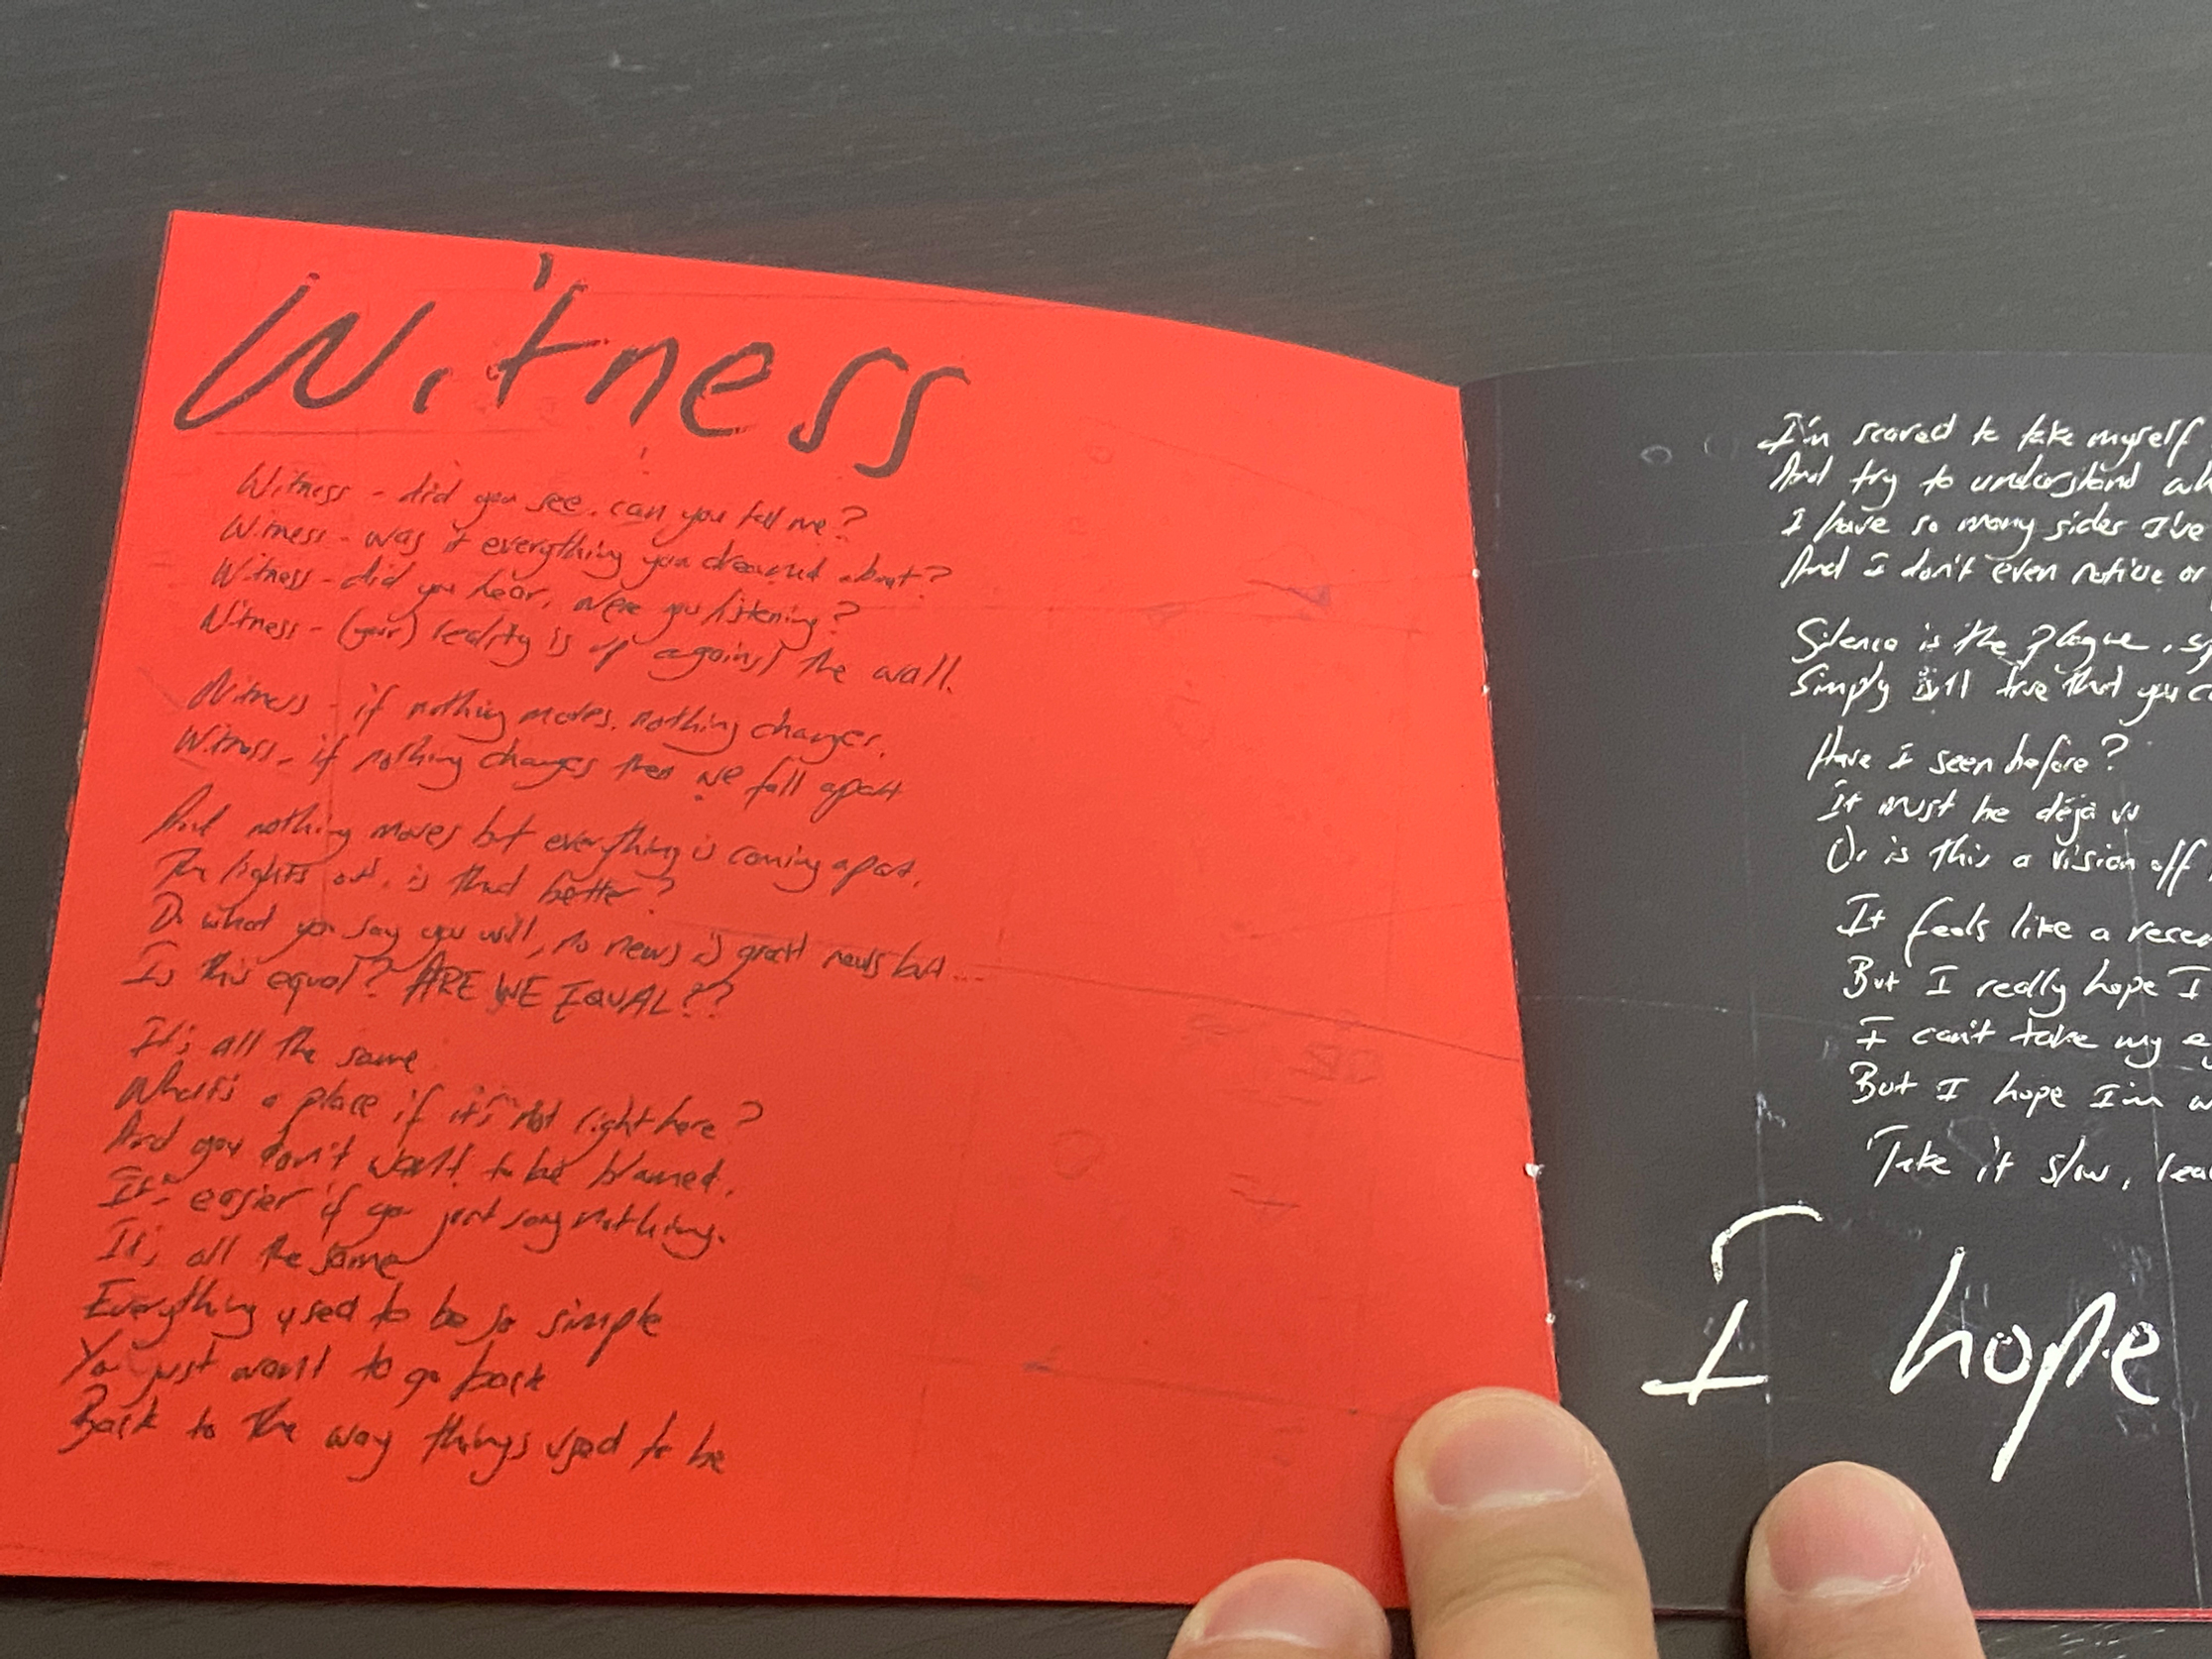 Witness
Witness - did you see, can you tell me?
Witness - was it everything you dreamed about?
Witness - did you hear, were you listening?
Witness - (your) reality is up against the wall.
Witness - if nothing moves, nothing changes.
Witness - if nothing changes then we fall apart
And nothing moves but everything is coming apart.
The lights out, is that better?
Do what you say you will, no news is great news but...
Is this equal? ARE WE EQUAL??
It's all the same
What's a place if it's not right here?
And you don't want to be blamed.
It's easier if you just say nothing.
It's all the same
Everything used to be so simple
You just want to go back
Back to the way things used to be
I'm scared to take myself
And try to understand
I have so many sides I've
And I don't even notice or
Silence is the plague,
Simply still true that you
Have I seen before?
It must be déjà vu
Or is this a vision off
It feels like a
But I really hope I
I can't take my
But I hope I'm
Take it slow,
I hope